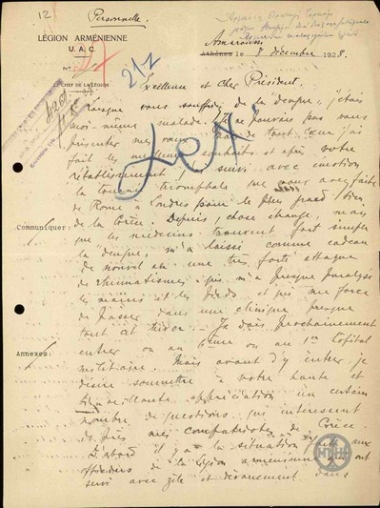 Personnelle
LÉGION ARMÉNIENNE
U. A. C.
LE CHEF DE LA LÉGION
Amarousi
Athènes le 8 décembre 1928.
217
Excellence et cher Président.
Lorsque vous souffriez de la "dengue", j'étais
moi-même malade. Je ne pouvais pas vous
présenter mes vœux mais de tout cœur j'ai
fait les meilleurs souhaits et après votre
rétablissement suivi avec émotion
la tournée triomphale que vous avez faite
de Rome à Londres pour le plus grand bien
de la Grèce. Depuis, chose étrange, mais
Communiquer:
que les médecins trouvent fort simple
la "dengue" m'a laissé comme cadeau
de nouvel an une très forte attaque
de rhumatismes qui m'a presque paralysé
les mains et les pieds et qui me force
de passer dans une clinique presque
tout cet hiver. Je dois prochainement
Annexes:
entrer ou au ou au 1er hôpital
militaire. Mais avant d'y entrer je
désire soumettre à votre haute et
bienveillante appréciation un certain
nombre de questions qui intéressent
de près mes compatriotes de Grèce.
D'abord il y a la situation faite aux
officiers de la légion arménienne qui ont
servi avec zèle et dévouement dans